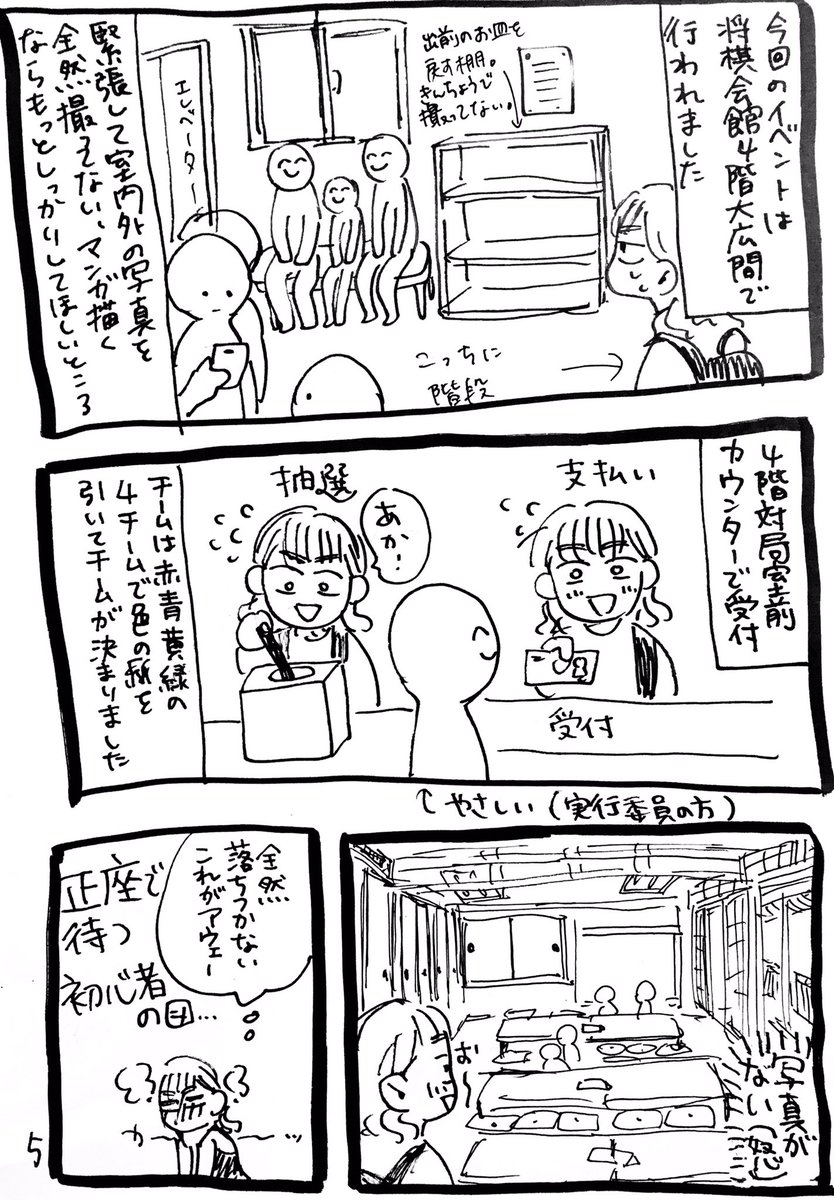 今回のイベントは
将棋会館4階大広間で
行われました
出前のお皿を
戻す棚。
きんちょうで
撮ってない。
エレベーター
こっちに
階段
緊張して室内外の写真を
全然撮ってない、マンガ描く
ならもっとしっかりしてほしいところ
4階対局室前
カウンターで受付
支払い
受付
抽選
あか!
チームは赤青黄緑の
4チームで色の紙を
引いてチームが決まりました
↑やさしい(実行委員の方)
お〜
写真が
ない(怒)
全然
落ちつかない
これがアウェー
正座で
待つ
初心者
の図…
5